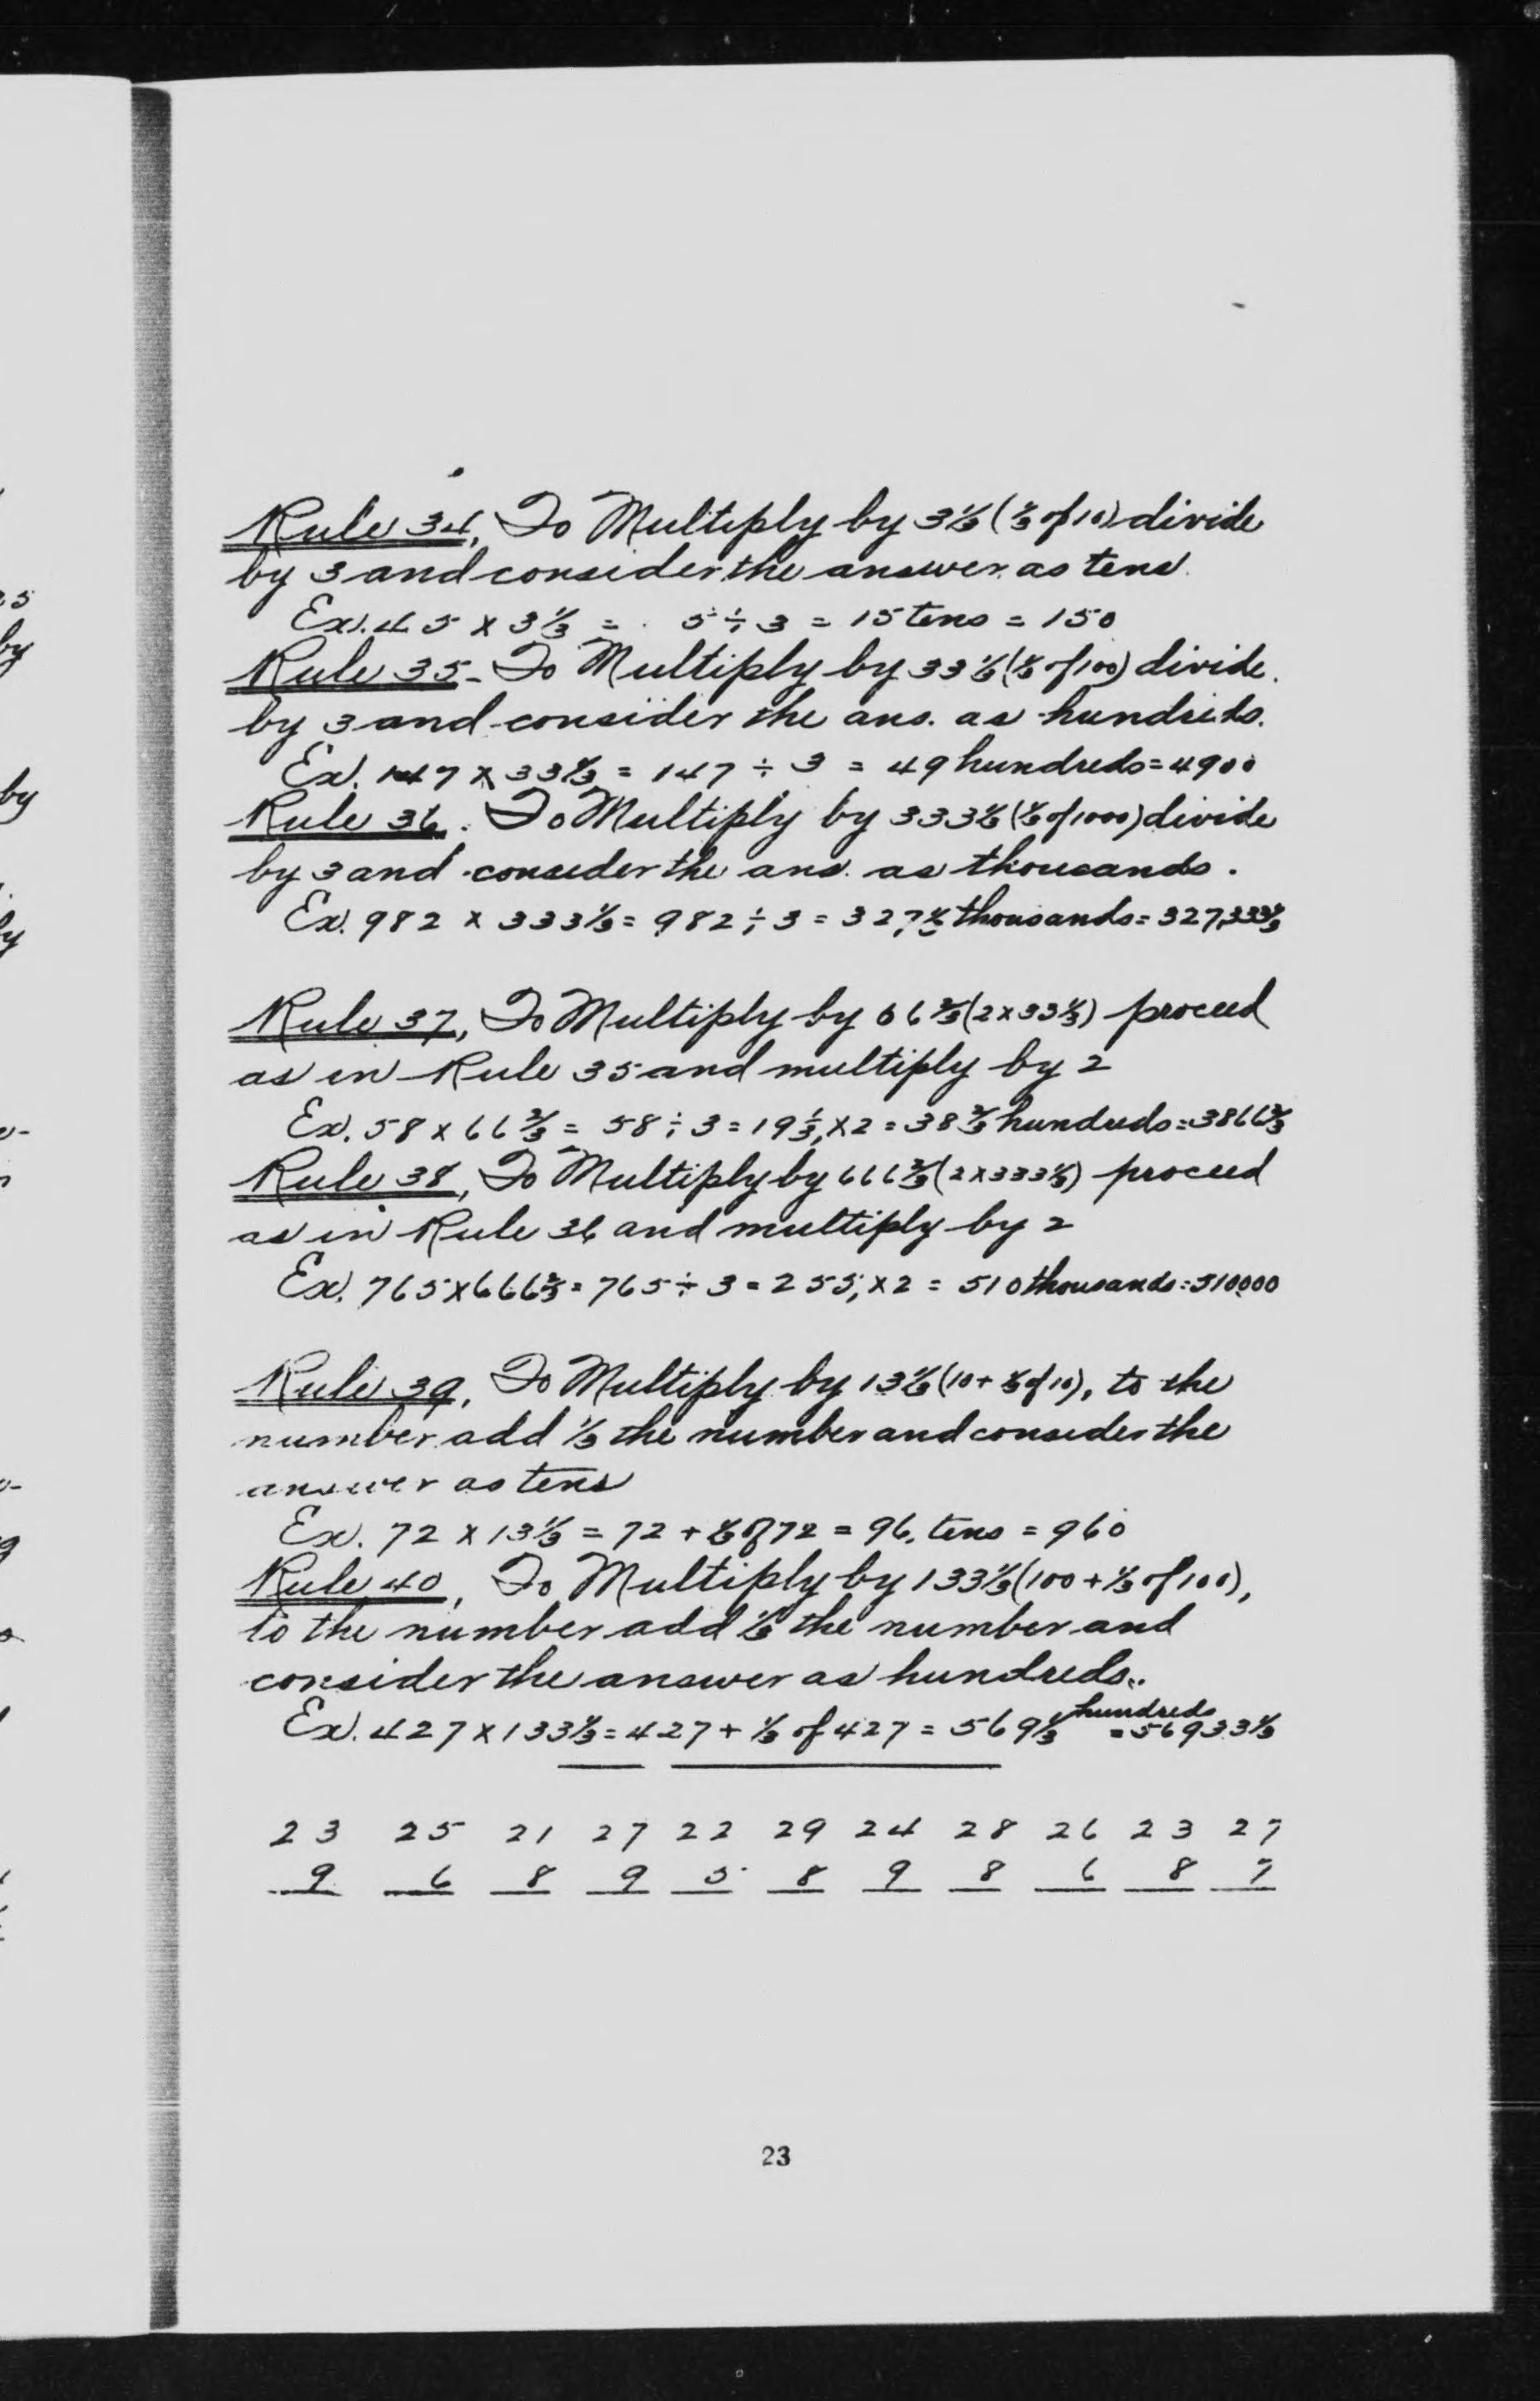 Rule 34, To Multiply by 3⅓ (⅓ of 10) divide
by 3 and consider the answer as tens.
Ex. 45 × 3⅓ = 5 ÷ 3 = 15 tens = 150
Rule 35 - To Multiply by 33⅓ (⅓ of 100) divide.
by 3 and consider the ans. as hundreds.
Ex. 147 × 33⅓ = 147 ÷ 3 = 49 hundreds = 4900
Rule 36. To Multiply by 333⅓ (⅓ of 1000) divide
by 3 and consider the ans. as thousands.
Ex. 982 × 333⅓ = 982 ÷ 3 = 327⅓ thousands = 327,333⅓
Rule 37, To Multiply by 66⅔ (2 × 33⅓) proceed
as in Rule 35 and multiply by 2
Ex. 58 × 66⅔ = 58 ÷ 3 = 19⅓, × 2 = 38⅔ hundreds = 3866⅔
Rule 38, To Multiply by 666⅔ (2 × 333⅓) proceed
as in Rule 36 and multiply by 2
Ex. 765 × 666⅔ = 765 ÷ 3 = 255, × 2 = 510 thousands = 510000
Rule 39, To Multiply by 13⅓ (10 + ⅓ of 10), to the
number add ⅓ the number and consider the
answer as tens
Ex. 72 × 13⅓ = 72 + ⅓ of 72 = 96, tens = 960
Rule 40, To Multiply by 133⅓ (100 + ⅓ of 100),
to the number add ⅓ the number and
consider the answer as hundreds.
Ex. 427 × 133⅓ = 427 + ⅓ of 427 = 569⅓ hundreds = 56933⅓
23 25 21 27 22 29 24 28 26 23 27
9 6 8 9 5 8 9 8 6 8 7
23